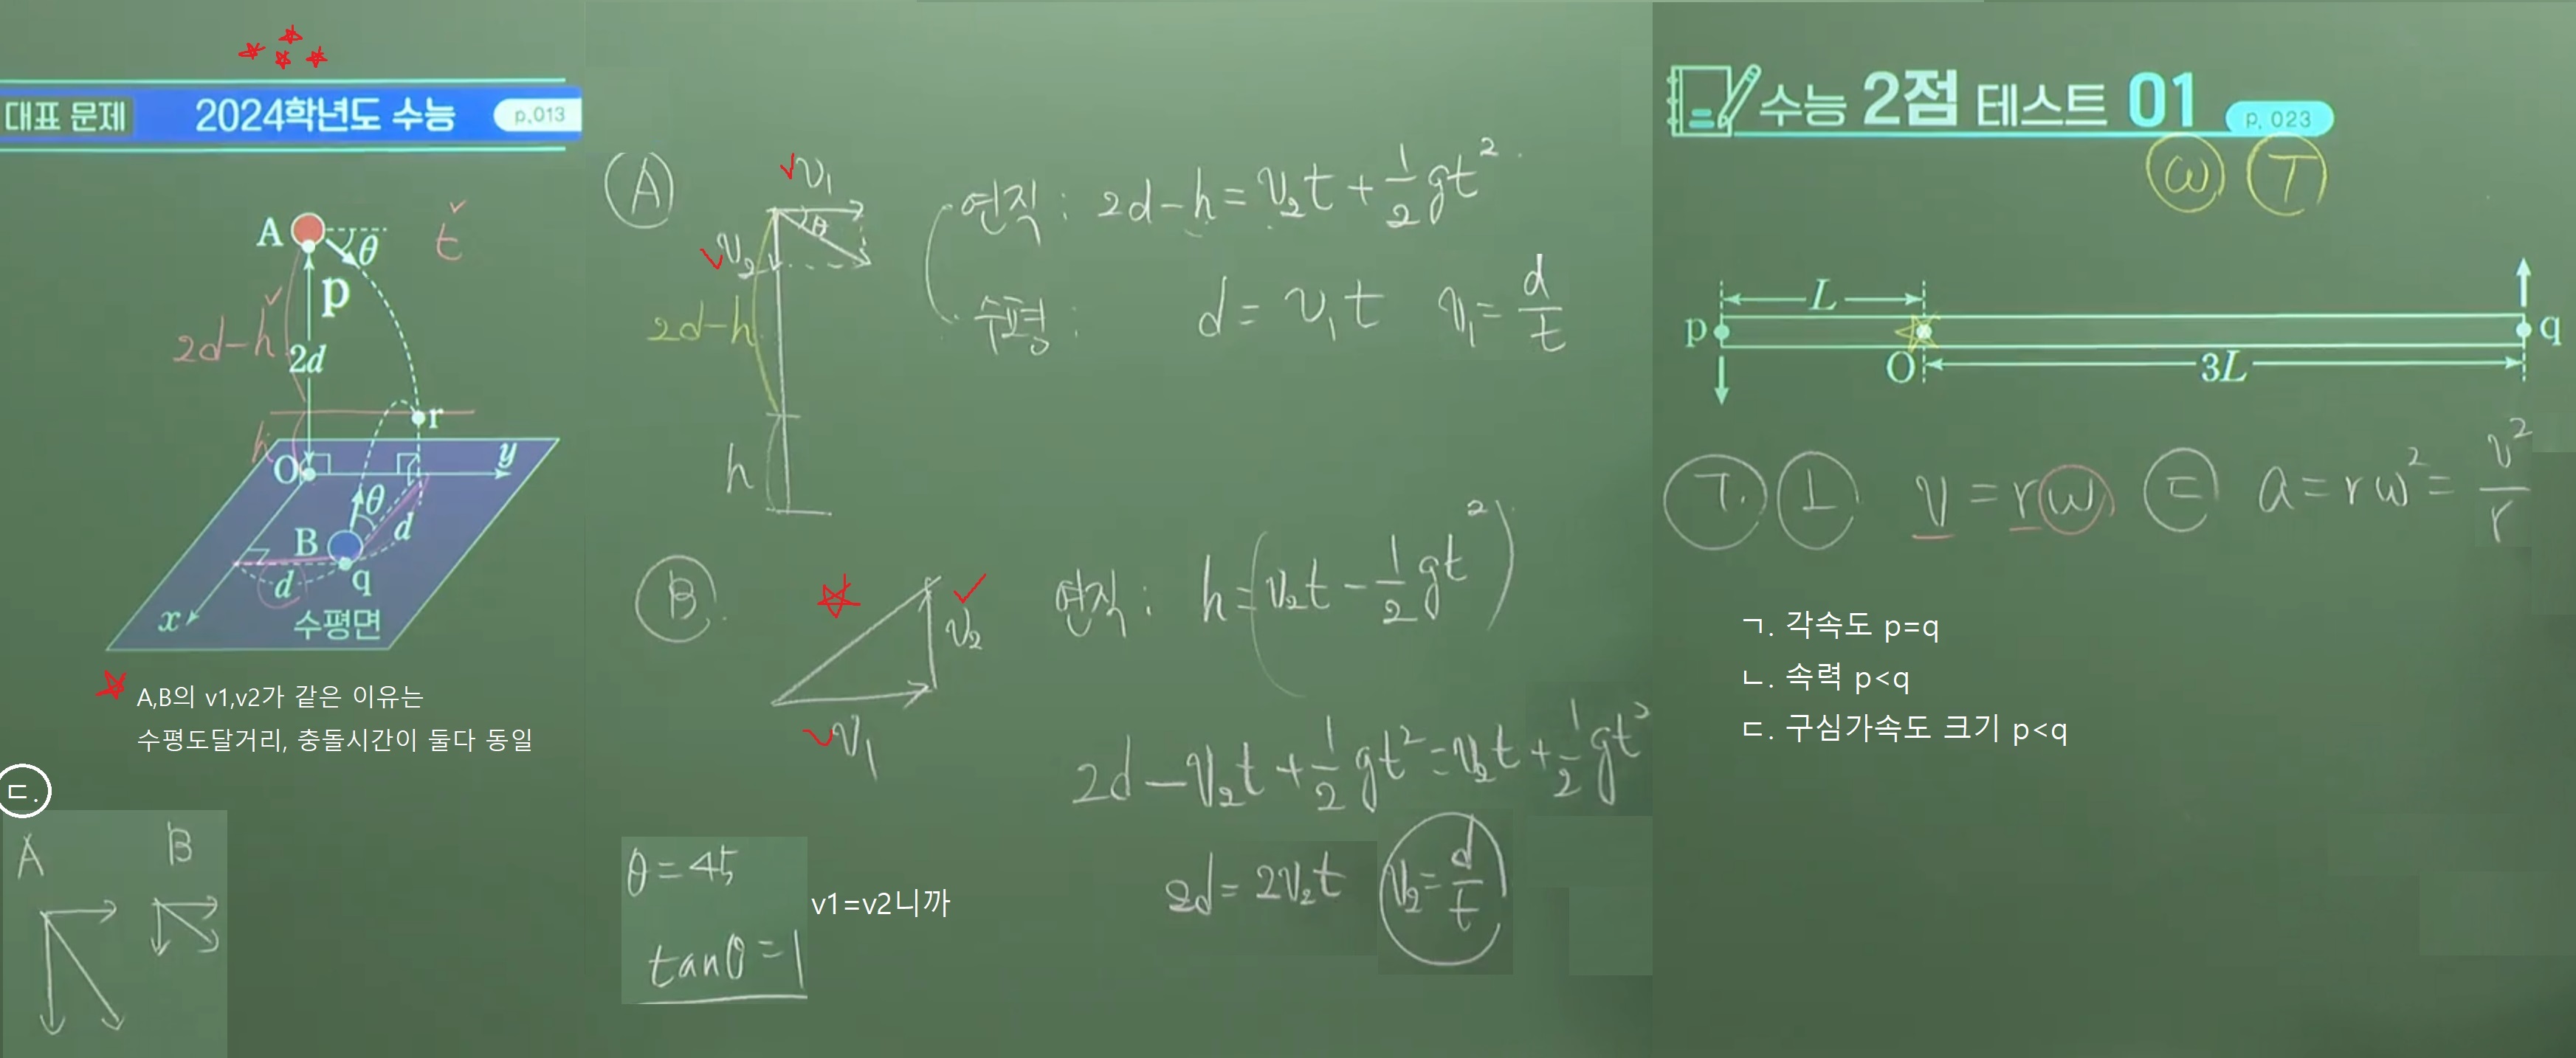 대표 문제 2024학년도 수능 p.013
A θ t
p
2d-h 2d
r
h
O y
θ
B d
d q
x 수평면
A,B의 v1,v2가 같은 이유는
수평도달거리, 충돌시간이 둘다 동일
ㄷ.
A B
A
v₁
θ
v₂
2d-h
h
연직 : 2d-h = v₂t + 1/2 gt²
수평 : d = v₁t v₁ = d/t
B
v₂
v₁
연직 : h = (v₂t - 1/2 gt²)
2d - v₂t + 1/2 gt² = v₂t + 1/2 gt²
2d = 2v₂t v₂ = d/t
θ = 45
tanθ = 1
v1=v2니까
수능 2점 테스트 01 p. 023
ω T
L
p q
O 3L
ㄱ. ㄴ v = rω ㄷ a = rω² = v²/r
ㄱ. 각속도 p=q
ㄴ. 속력 p<q
ㄷ. 구심가속도 크기 p<q